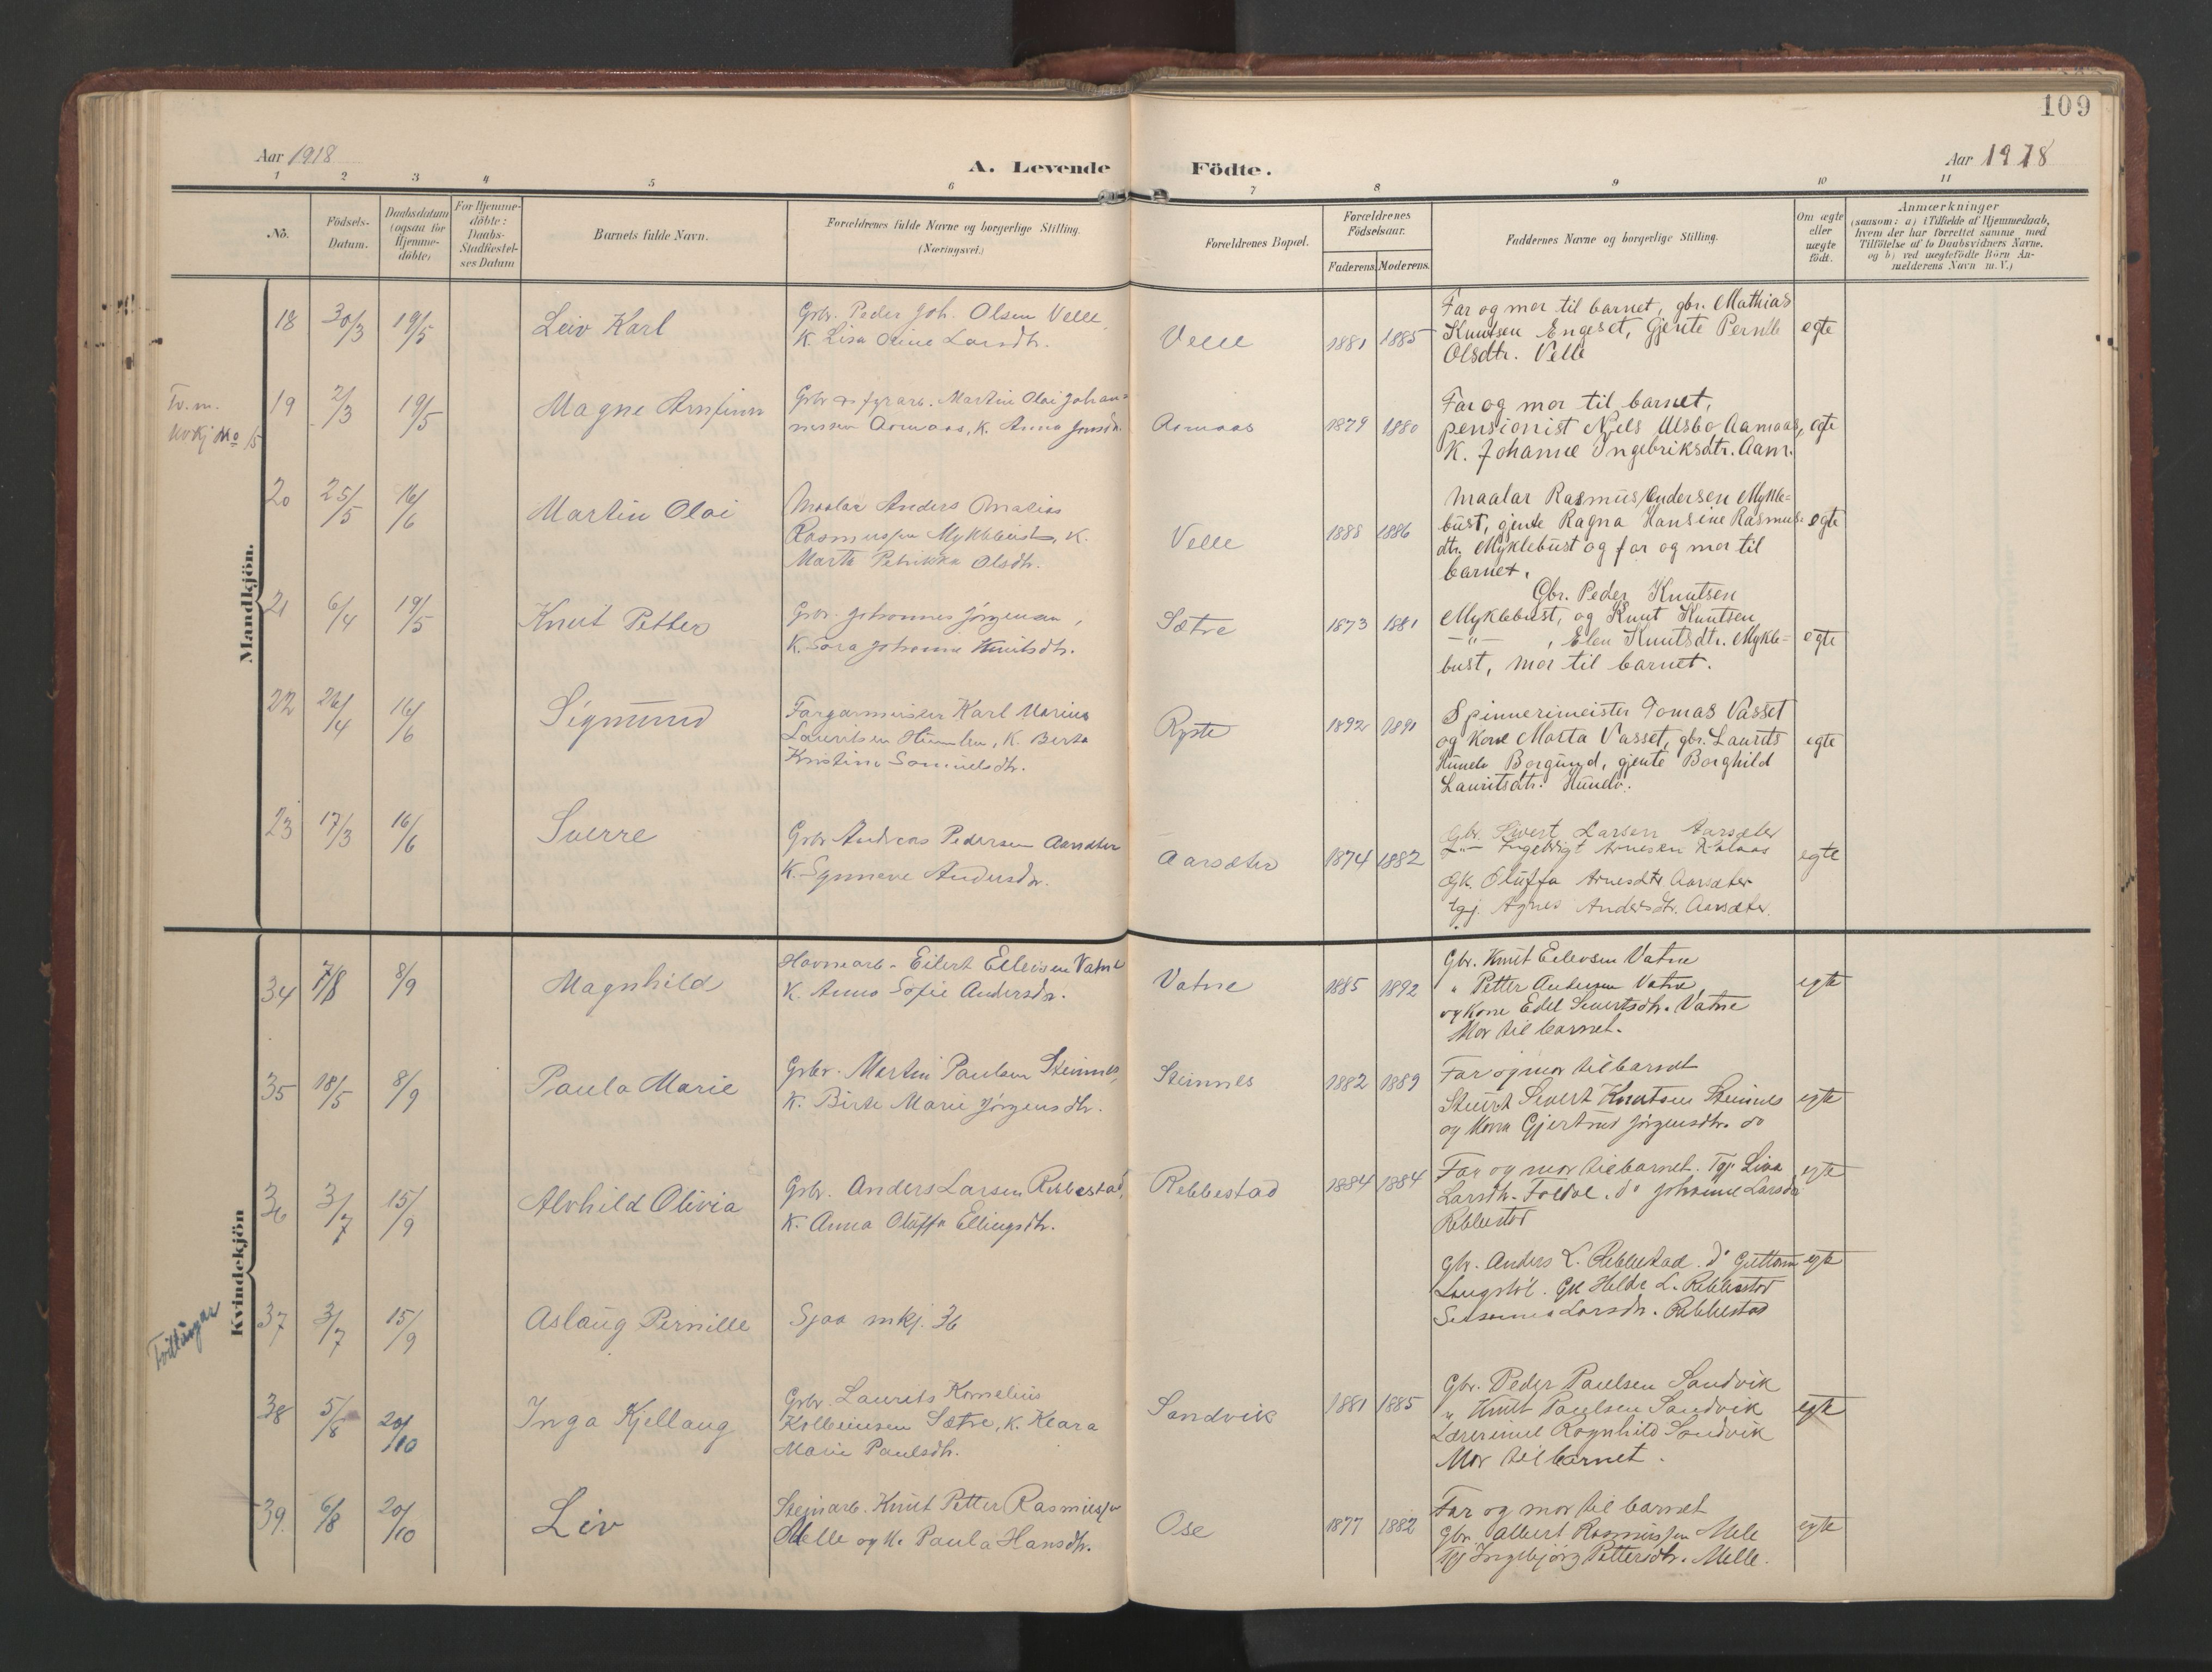 109
Aar 1918
A. Levende Födte.
Aar 1918
1 2 3 4 5 6 7 8 9 10 11
No.
Födsels-
Datum.
Daabsdatum
(ogsaa for
Hjemme-
döbte)
For Hjemme-
döbte:
Daabs-
Stadfæstel-
ses Datum
Barnets fulde Navn.
Forældrenes fulde Navne og borgerlige Stilling.
(Næringsvei.)
Forældrenes Bopæl.
Forældrenes
Födselsaar.
Faderens. Moderens.
Faddernes Navne og borgerlige Stilling.
Om ægte
eller
uægte
födt.
Anmærkninger
(saasom: a) i Tilfælde af Hjemmedaab,
hvem der har forrettet samme med
Tilföielse af to Daabsvidners Navne,
og b) ved uægtefödte Börn An-
melderens Navn m. V.)
Mandkjön.
18 30/3 19/5 Leiv Karl
Grbr. Peder Joh. Olsen Velle,
K. Lisa Oline Larsdtr.
Velle 1881 1885
Far og mor til barnet, gbr. Mathias
Knutsen Engeset, Gjente Pernille
Olsdtr. Velle
egte
Tv. m.
kvkj No 15
19 2/3 19/5 Magne Arnfinn
Grbr og fyrarb. Martin Olai Johan-
nessen Aamaas, K. Anna Jensd.
Aamaas 1879 1880
Far og mor til barnet,
pensionist Njels Ulsbo Aamaas,
K. Johanne Ingebriksdtr. Aam.
egte
20 25/5 16/6 Martin Olai
Maalar Anders Matias
Rasmussen Myklebust, K.
Marta Petrikka Olsdtr.
Velle 1888 1886
Maalar Rasmus Andersen Mykle-
bust, gjente Ragna Hansine Rasmus-
dtr. Myklebust og far og mor til
barnet.
egte
21 6/4 19/5 Knut Petter
Grbr. Johannes Jörgensen,
K. Sara Johanne Knutsdtr.
Sætre 1873 1881
Gbr. Peder Knutsen
Myklebust, og Knut Knutsen
—"— , Elen Knutsdtr. Mykle-
bust, mor til barnet.
egte
22 26/4 16/6 Sigmund
Fargarmeister Karl Marius
Lauritsen, K. Berta
Kristine Samuelsdtr.
Ryste 1892 1891
Spinnerimeister Tomas Vasset
og kone Marta Vasset, gbr. Laurits
Borgund, gjente Borghild
Lauritsdtr.
egte
23 17/3 16/6 Sverre
Grbr Andreas Pedersen Aarsæter
K. Synneve Andersdr.
Aarsæter 1874 1882
Gbr. Sivert Larsen Aarsæter
Ingebrigt Arnesen Kalaas
Gk. Oluffa Arnesdtr Aarsæter
Ugj. Agnes Andersdtr. Aarsæter.
egte
Kvindekjön
34 7/8 8/9 Magnhild
Havnearb. Eilert Ellevsen Vatne
K. Anna Sofie Andersdr.
Vatne 1885 1892
Gbr. Knut Eilevsen Vatne
" Petter Andersen Vatne,
og Kone Edel Sivertsdtr. Vatne
Mor til barnet.
egte
35 18/5 8/9 Paula Marie
Grbr. Martin Paulsen Steinnes,
K. Birte Marie Jörgensdtr.
Steinnes 1882 1889
Far og mor til barnet
Sivert Knutsen Steinnes
og Kona Gjertrud Jörgensdtr. do
egte
36 3/7 15/9 Alvhild Olivia
Grbr. Anders Larsen Rebbestad,
K. Anna Oluffa Ellingsdtr.
Rebbestad 1884 1884
Far og mor til barnet. Tgj. Lina
Larsdtr. Foldal. do Johanne Larsdr
Rebbestad
egte
Tvillingar
37 3/7 15/9 Aslaug Pernille
Sjaa mkj. 36
Gbr. Anders L. Rebbestad. do Guttorm
Langstöl. Gk Helde L. Rebbestad
Larsdr. Rebbestad
egte
38 5/8 20/10 Inga Kjellaug
Grbr. Laurits Kornelius
Kolbeinsen Sætre, K. Klara
Marie Paulsdtr.
Sandvik 1881 1885
Gbr. Peder Paulsen Sandvik
" Knut Paulsen Sandvik
Lærerinne Ragnhild Sandvik
Mor til barnet.
egte
39. 6/8 20/10 Liv
Steinarb. Knut Petter Rasmussen
Melle og K. Paula Hansdtr.
Ose 1877 1882
Far og mor til barnet
Gbr. Albert Rasmussen Mele
Tgj Ingebjörg Pettersdtr. Melle.
egte